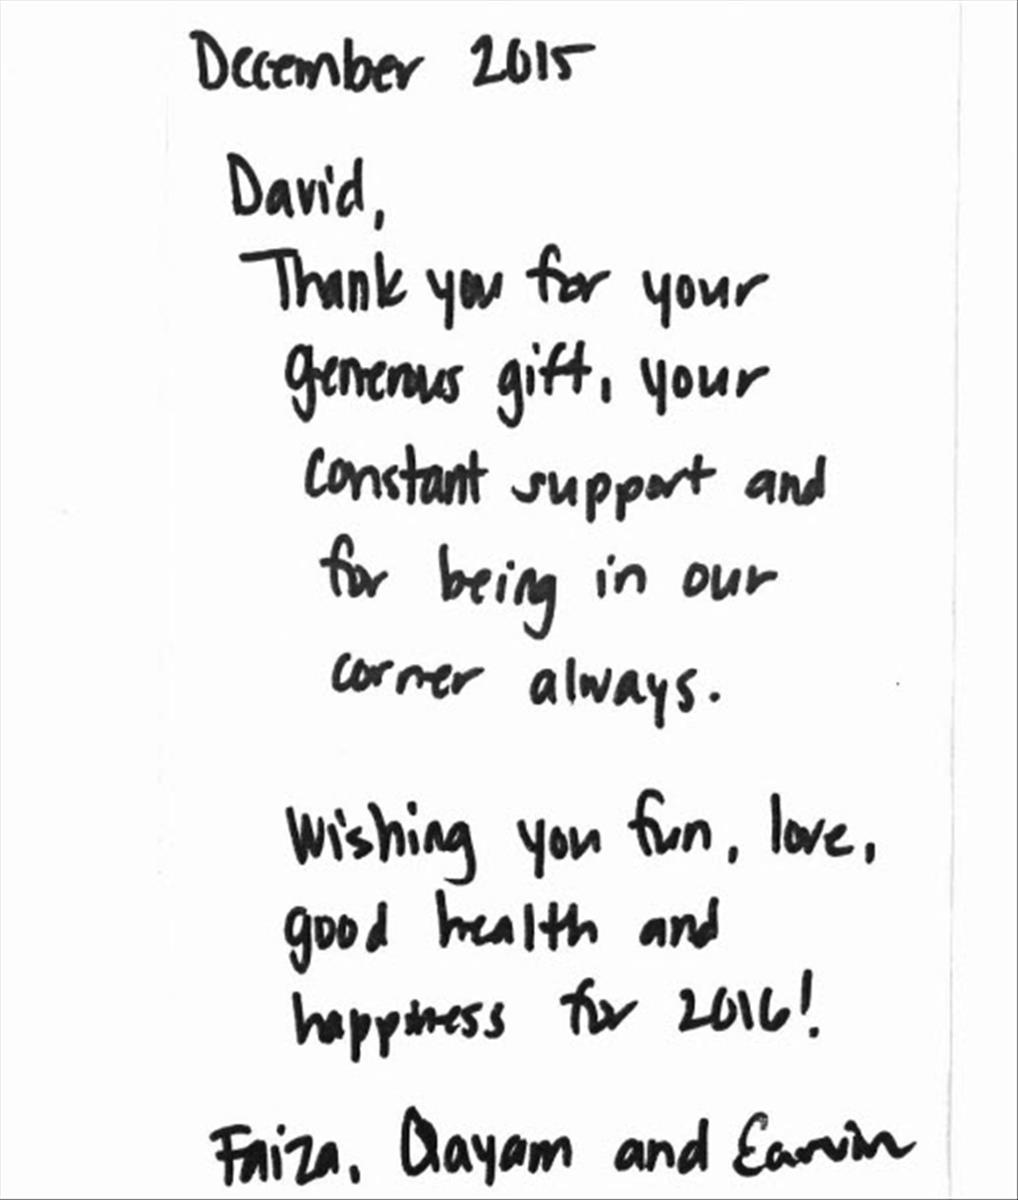 December 2015
David,
Thank you for your
generous gift, your
constant support and
for being in our
corner always.
Wishing you fun, love,
good health and
happiness for 2016!
Faiza, Qayam and